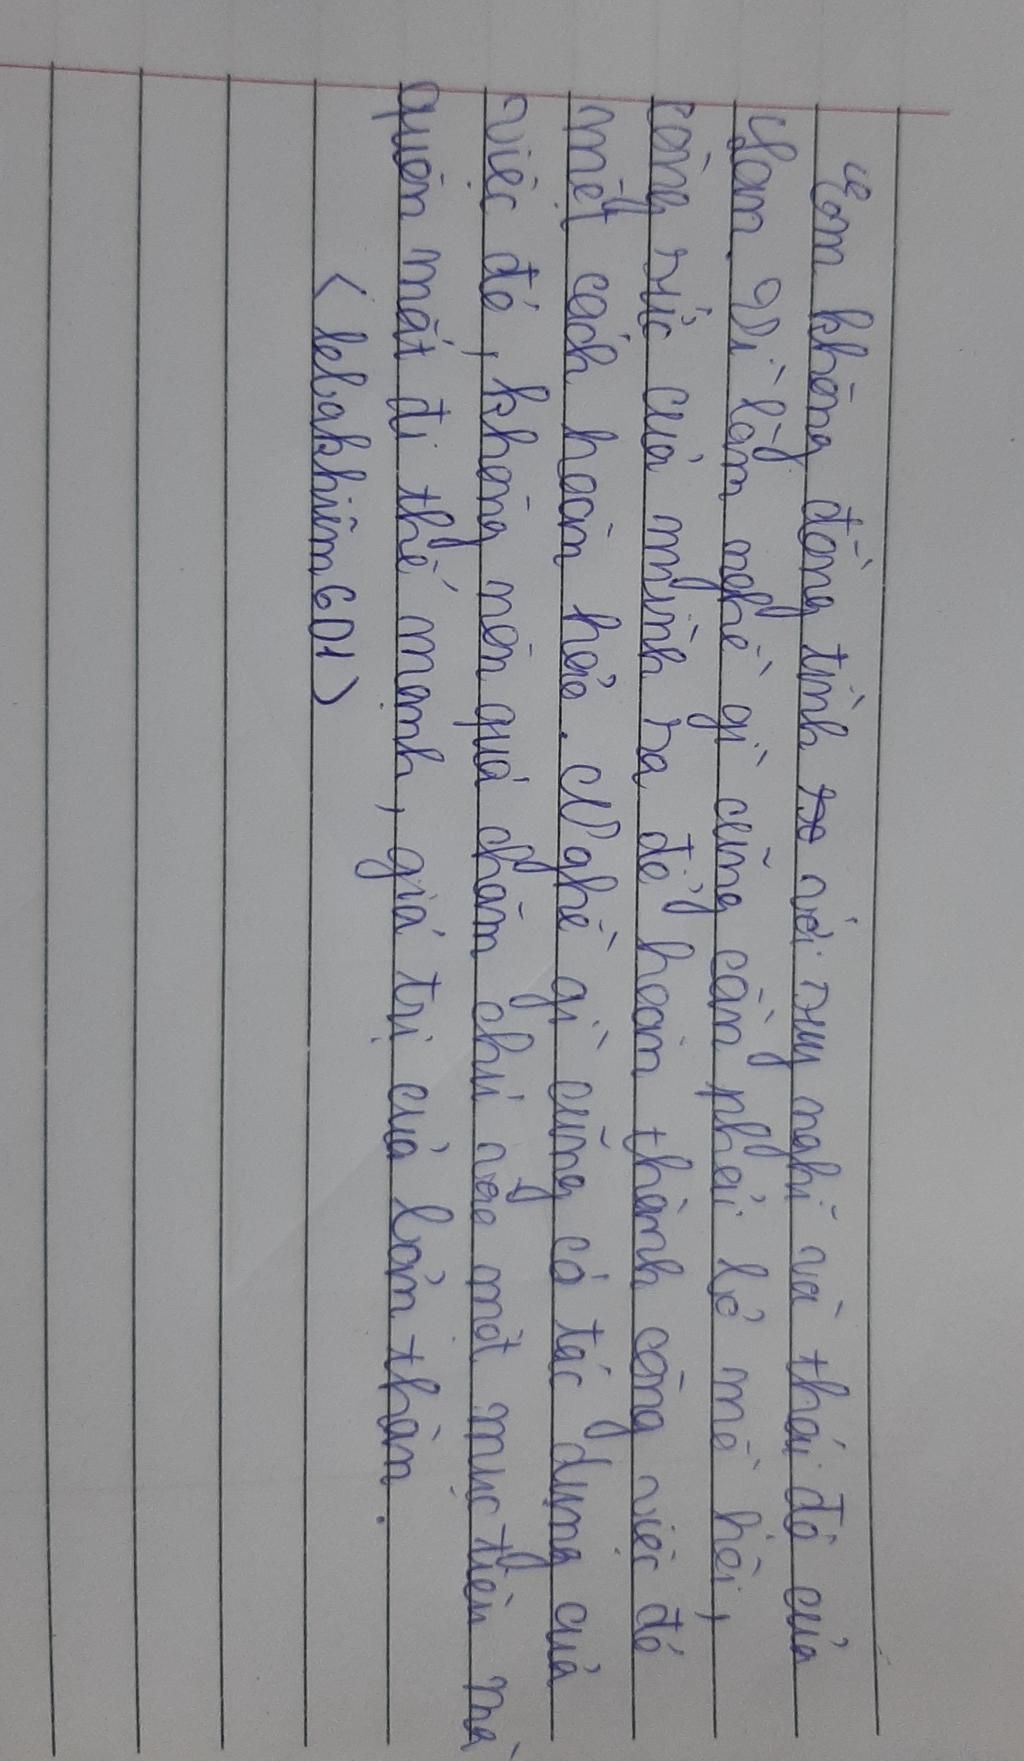 Em không đồng tình với suy nghĩ và thái độ của
Lam. Vì làm nghề gì cũng cần phải bỏ mồ hôi,
công sức của mình ra để hoàn thành công việc đó
một cách hoàn hảo. Nghề gì cũng có tác dụng của
việc đó, không nên quá chăm chú vào một mục tiêu mà
quên mất đi thế mạnh, giá trị của bản thân.
(lebakhiem601)